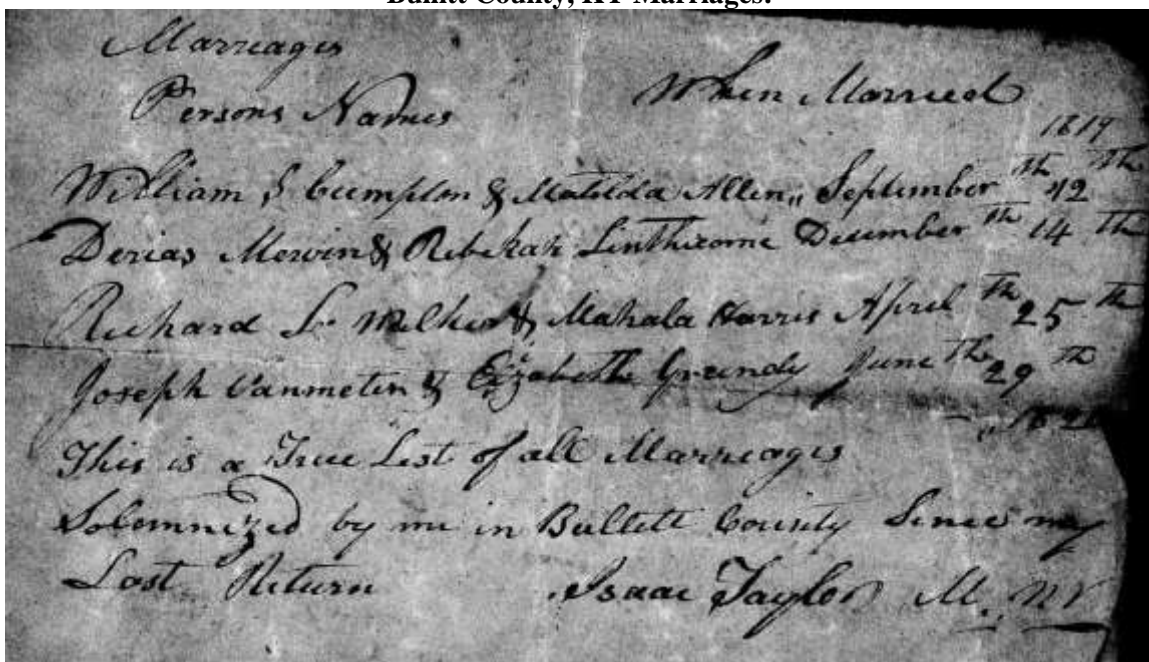 Bullitt County, KY Marriages.
Marreages
Persons Names When Married
1819
William S Crumpton & Matilda Allen,, September th 12 th
Derias Merwin & Rebekah Linthicome December th 14 th
Richard L. & Mahala Harris April th 25 th
Joseph Vanmeter & Elizabeth Grundy June th 29 th
This is a True List of all Marreages
Solemnized by me in Bullitt County Since my
Last Return Isaac Taylor